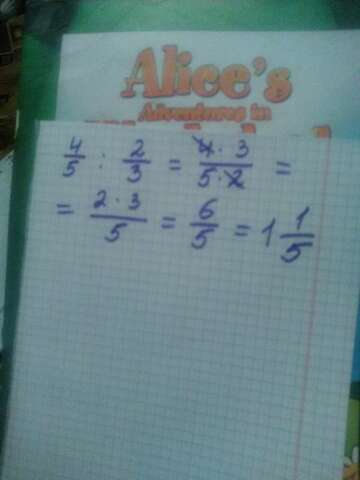 Alice's
Adventures in
4/5 : 2/3 = 4·3/5·2 =
= 2·3/5 = 6/5 = 1 1/5